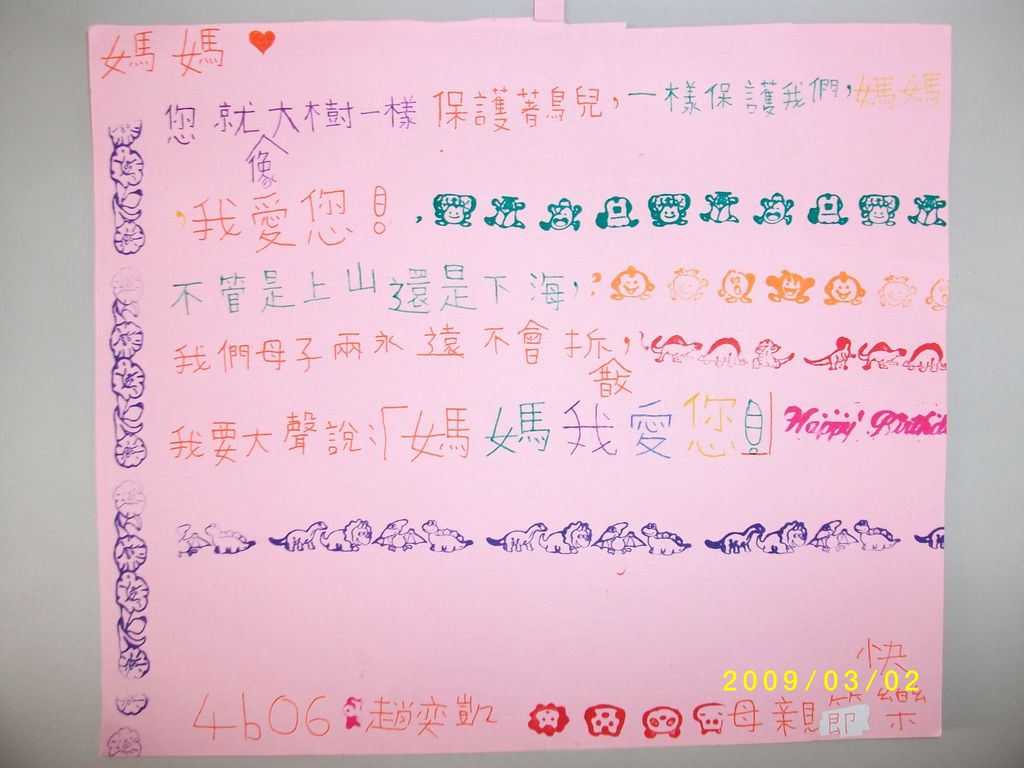 媽媽
您就像大樹一樣保護著鳥兒,一樣保護我們,媽媽
,我愛您!,
不管是上山還是下海,
我們母子兩永遠不會拆散,
我要大聲說:「媽媽我愛您!」Happy! Birthd
快
2009/03/02
4b06 趙奕凱 母親節樂